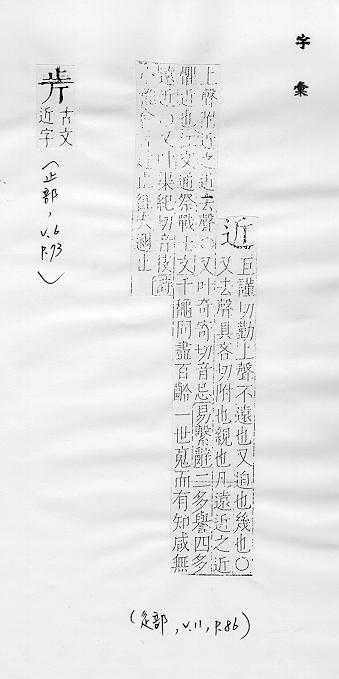 字彙
近
巨謹切勤上聲不遠也又迫也幾也〇
又去聲具吝切附也親也凡遠近之近
上聲附近之近去聲〇又叶奇寄切音忌易繫辭二多譽四多
懼近也江文通祭戰士文千龝同盡百齡一世寃而有知咸無
遠近〇又叶渠紀切音技詩
言近止征夫邇止
(辵部, v.11, P.86)
古文
近字
(止部, v.6
P.93)